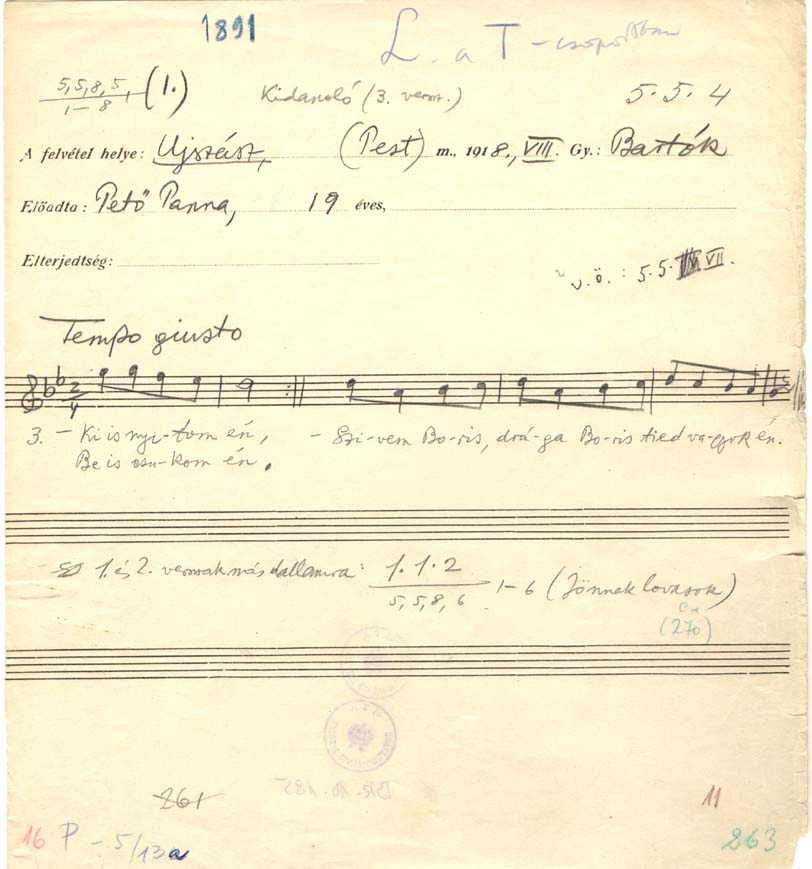 1891
L. a T - csoportban
5, 5, 8, 5, (1.)
1 - 8
Kidanoló (3. versz.)
5. 5. 4
A felvétel helye: Ujszász, (Pest) m., 1918., VIII. Gy.: Bartók
Előadta: Pető Panna, 19 éves,
Elterjedtség:
v. ö. : 5. 5. VII.
Tempo giusto
2
4
3. - Ki is nyi-tom én, - Szi-vem Bo-ris, drá-ga Bo-ris tied va-gyok én.
Be is csu-kom én.
1. és 2. versszak más dallamra: 1. 1. 2
5, 5, 8, 6 1-6 (Jönnek lovasok)
(270)
261
11
16 P - 5/13a
263